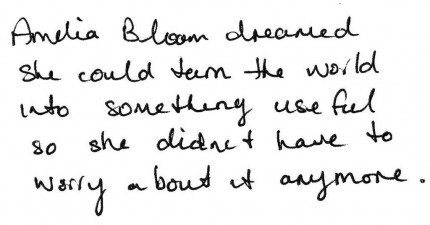 Amelia Bloom dreamed
she could turn the world
into something useful
so she didn't have to
worry about it anymore.